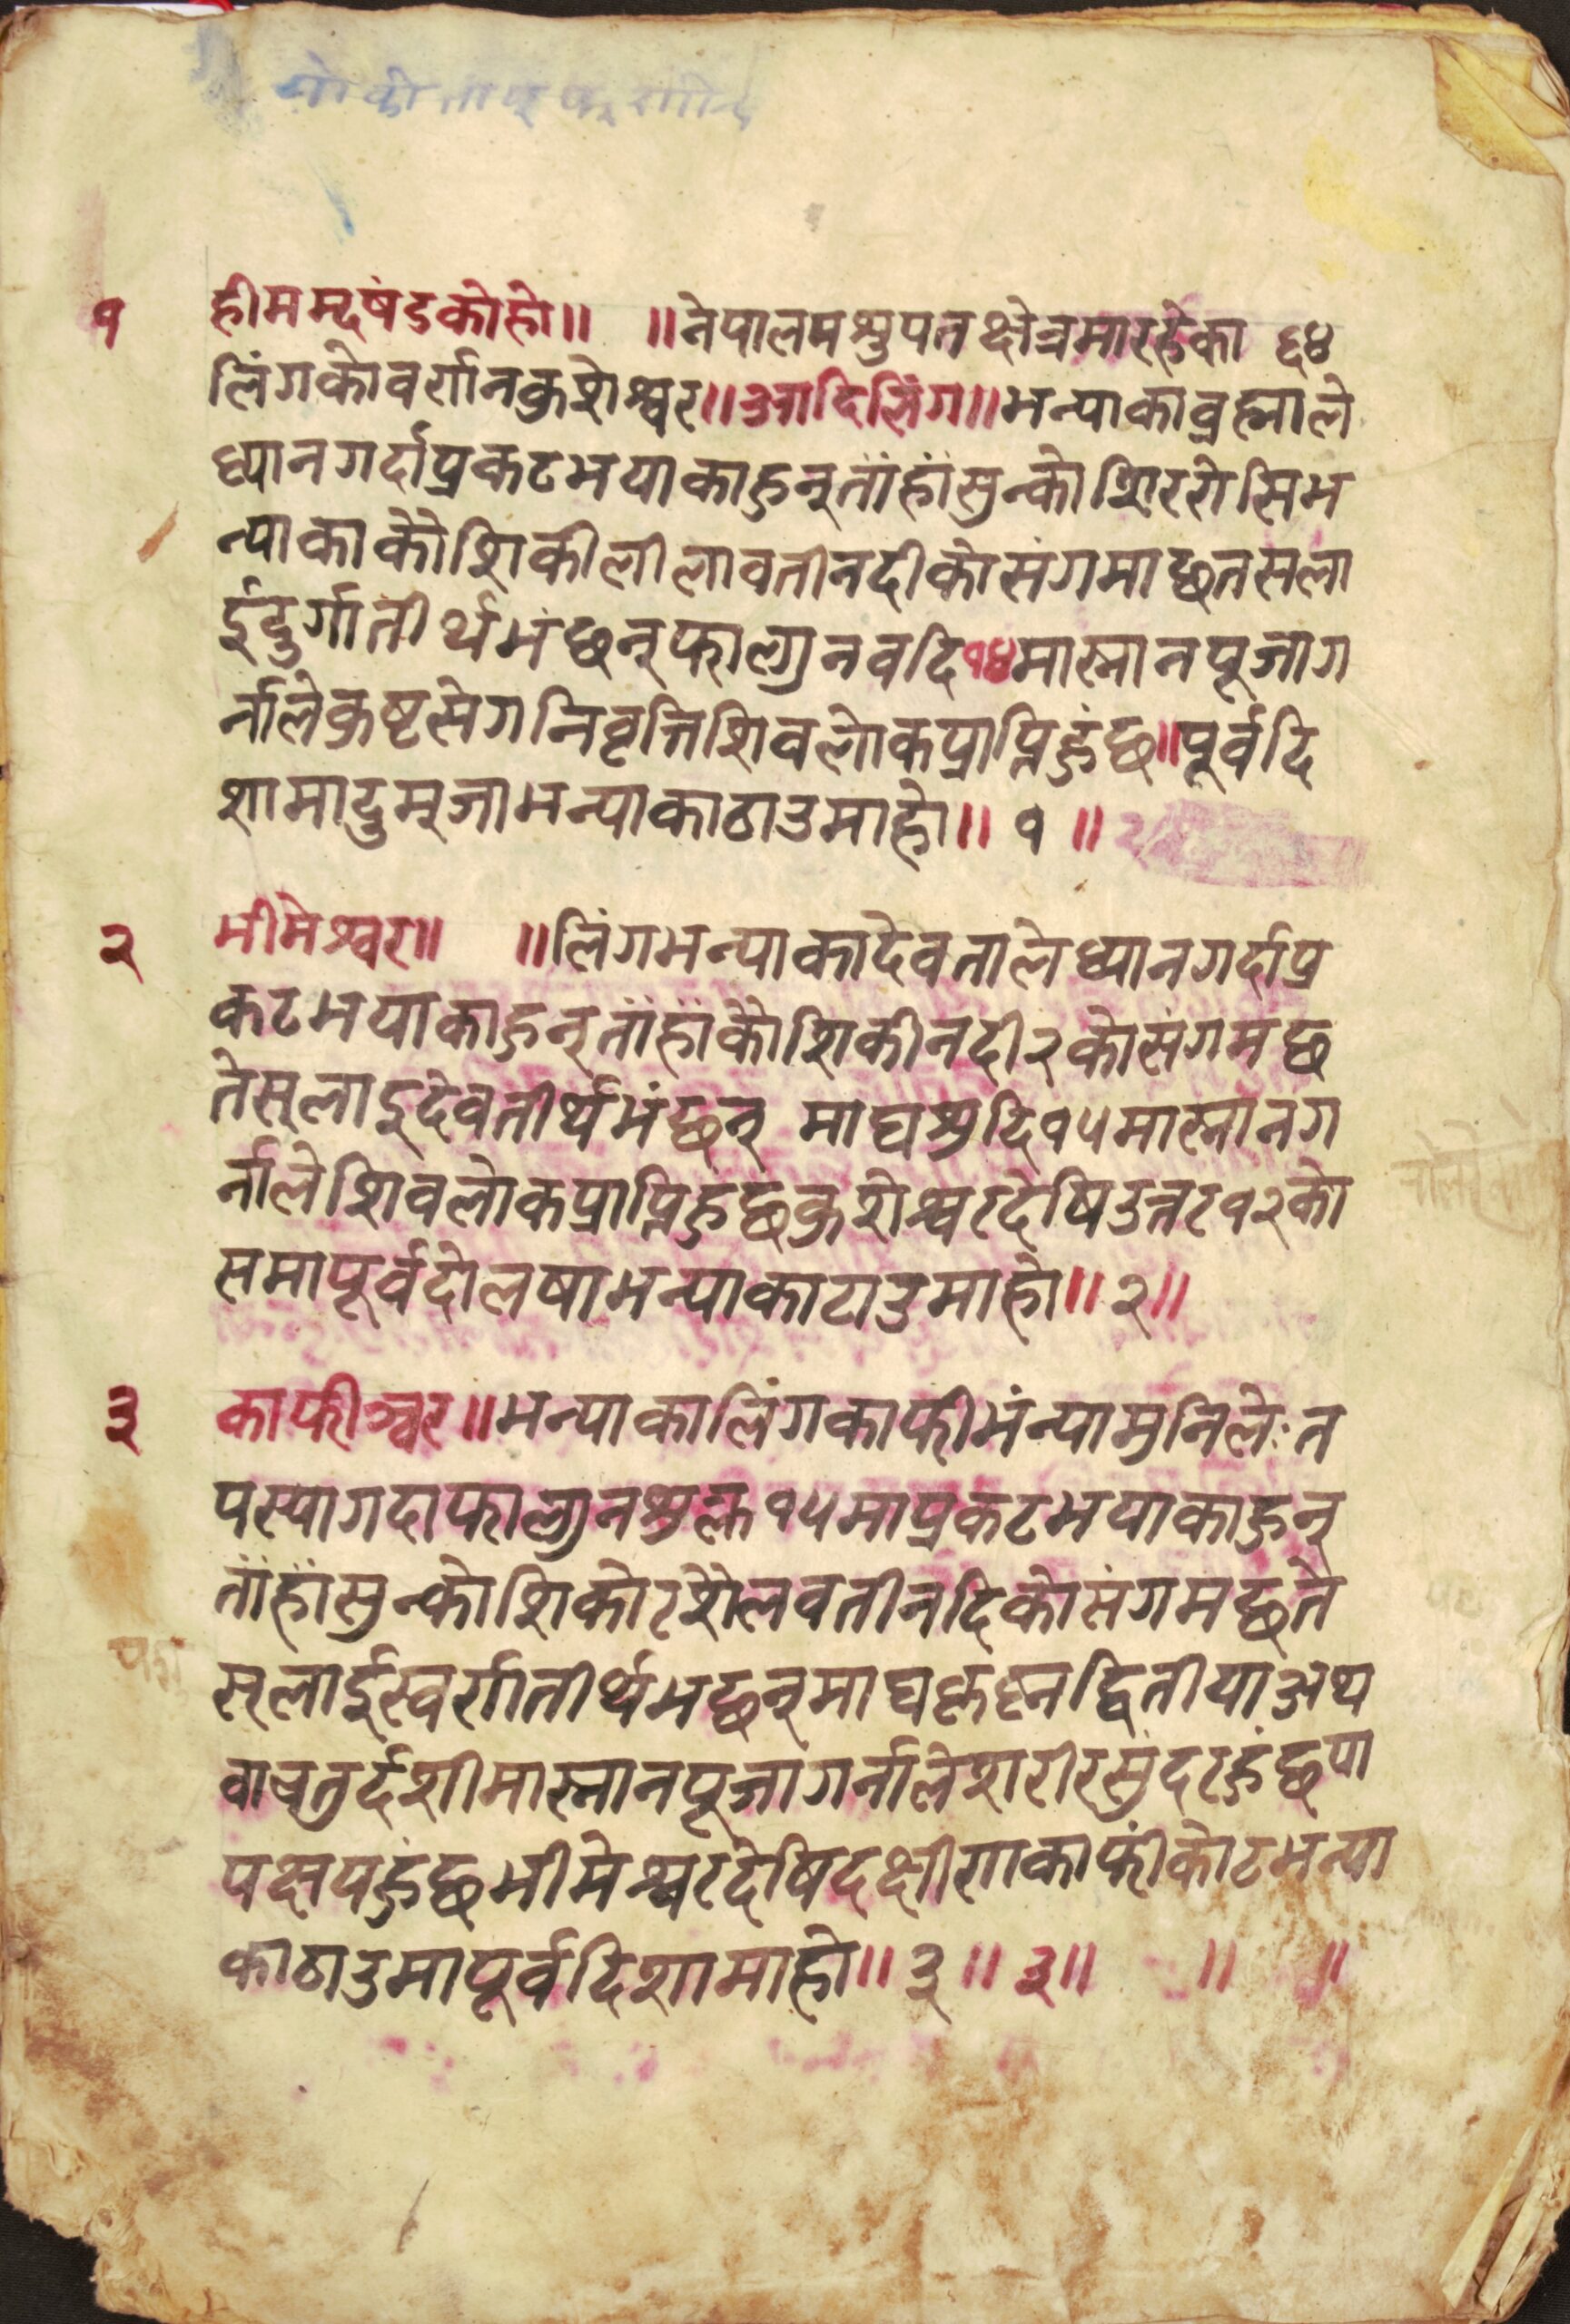 १ हीमम्दषंडकोहो॥ ॥नेपालपशुपतक्षेत्रमारहेका ६४
लिंगकोवर्णनकुशेश्वर॥आदिलिंग॥भन्याकाव्रह्माले
ध्यानगर्दाप्रकटभयाकाहुन्ताँहाँसुन्कोशिररोसिभ
न्याकाकौशिकीलीलावतीनदीकोसंगमाछतसला
ईदुर्गातीर्थभंछन्फाल्गुनवदि१४मास्नानपूजाग
र्नालेकुष्टरोगनिवृत्तिशिवलोकप्राप्तिहुंछ॥पूर्वदि
शामादुम्जाभन्याकाठाउमाहो॥ १ ॥
२ भीमेश्वर॥ ॥लिंगभन्याकादेवताले ध्यानगर्दाप्र
कटभयाकाहुन्ताँहाँकौशिकीनदी२कोसंगमछ
तेस्लाइदेवतीर्थभंछन् माघशुदि१५मास्नानग
र्नालेशिवलोकप्राप्तिहुछकुशेश्वरदेषिउत्तर१२को
समापूर्वदोलषाभन्याकाठाउमाहो॥२॥
३ काफीश्वर॥भन्याकालिंगकाफीभंन्यामुनिलेःत
पस्यागदाफाल्गुनशुक्ल१५माप्रकटभयाकाहुन्
ताँहाँसुन्कोशिकोरशैलवतीनदिकोसंगमछते
स्लाईस्वर्गातीर्थभछन्माघकृष्नद्वितीयाअथ
वाचतुर्दशीमास्नानपूजागर्नालेशरीरसुंदरहुंछपा
पक्षयहुंछभीमेश्वरदेषिदक्षीणकाफीकोटभन्या
काठाउमापूर्वदिशामाहो॥३॥३॥ ॥ ॥